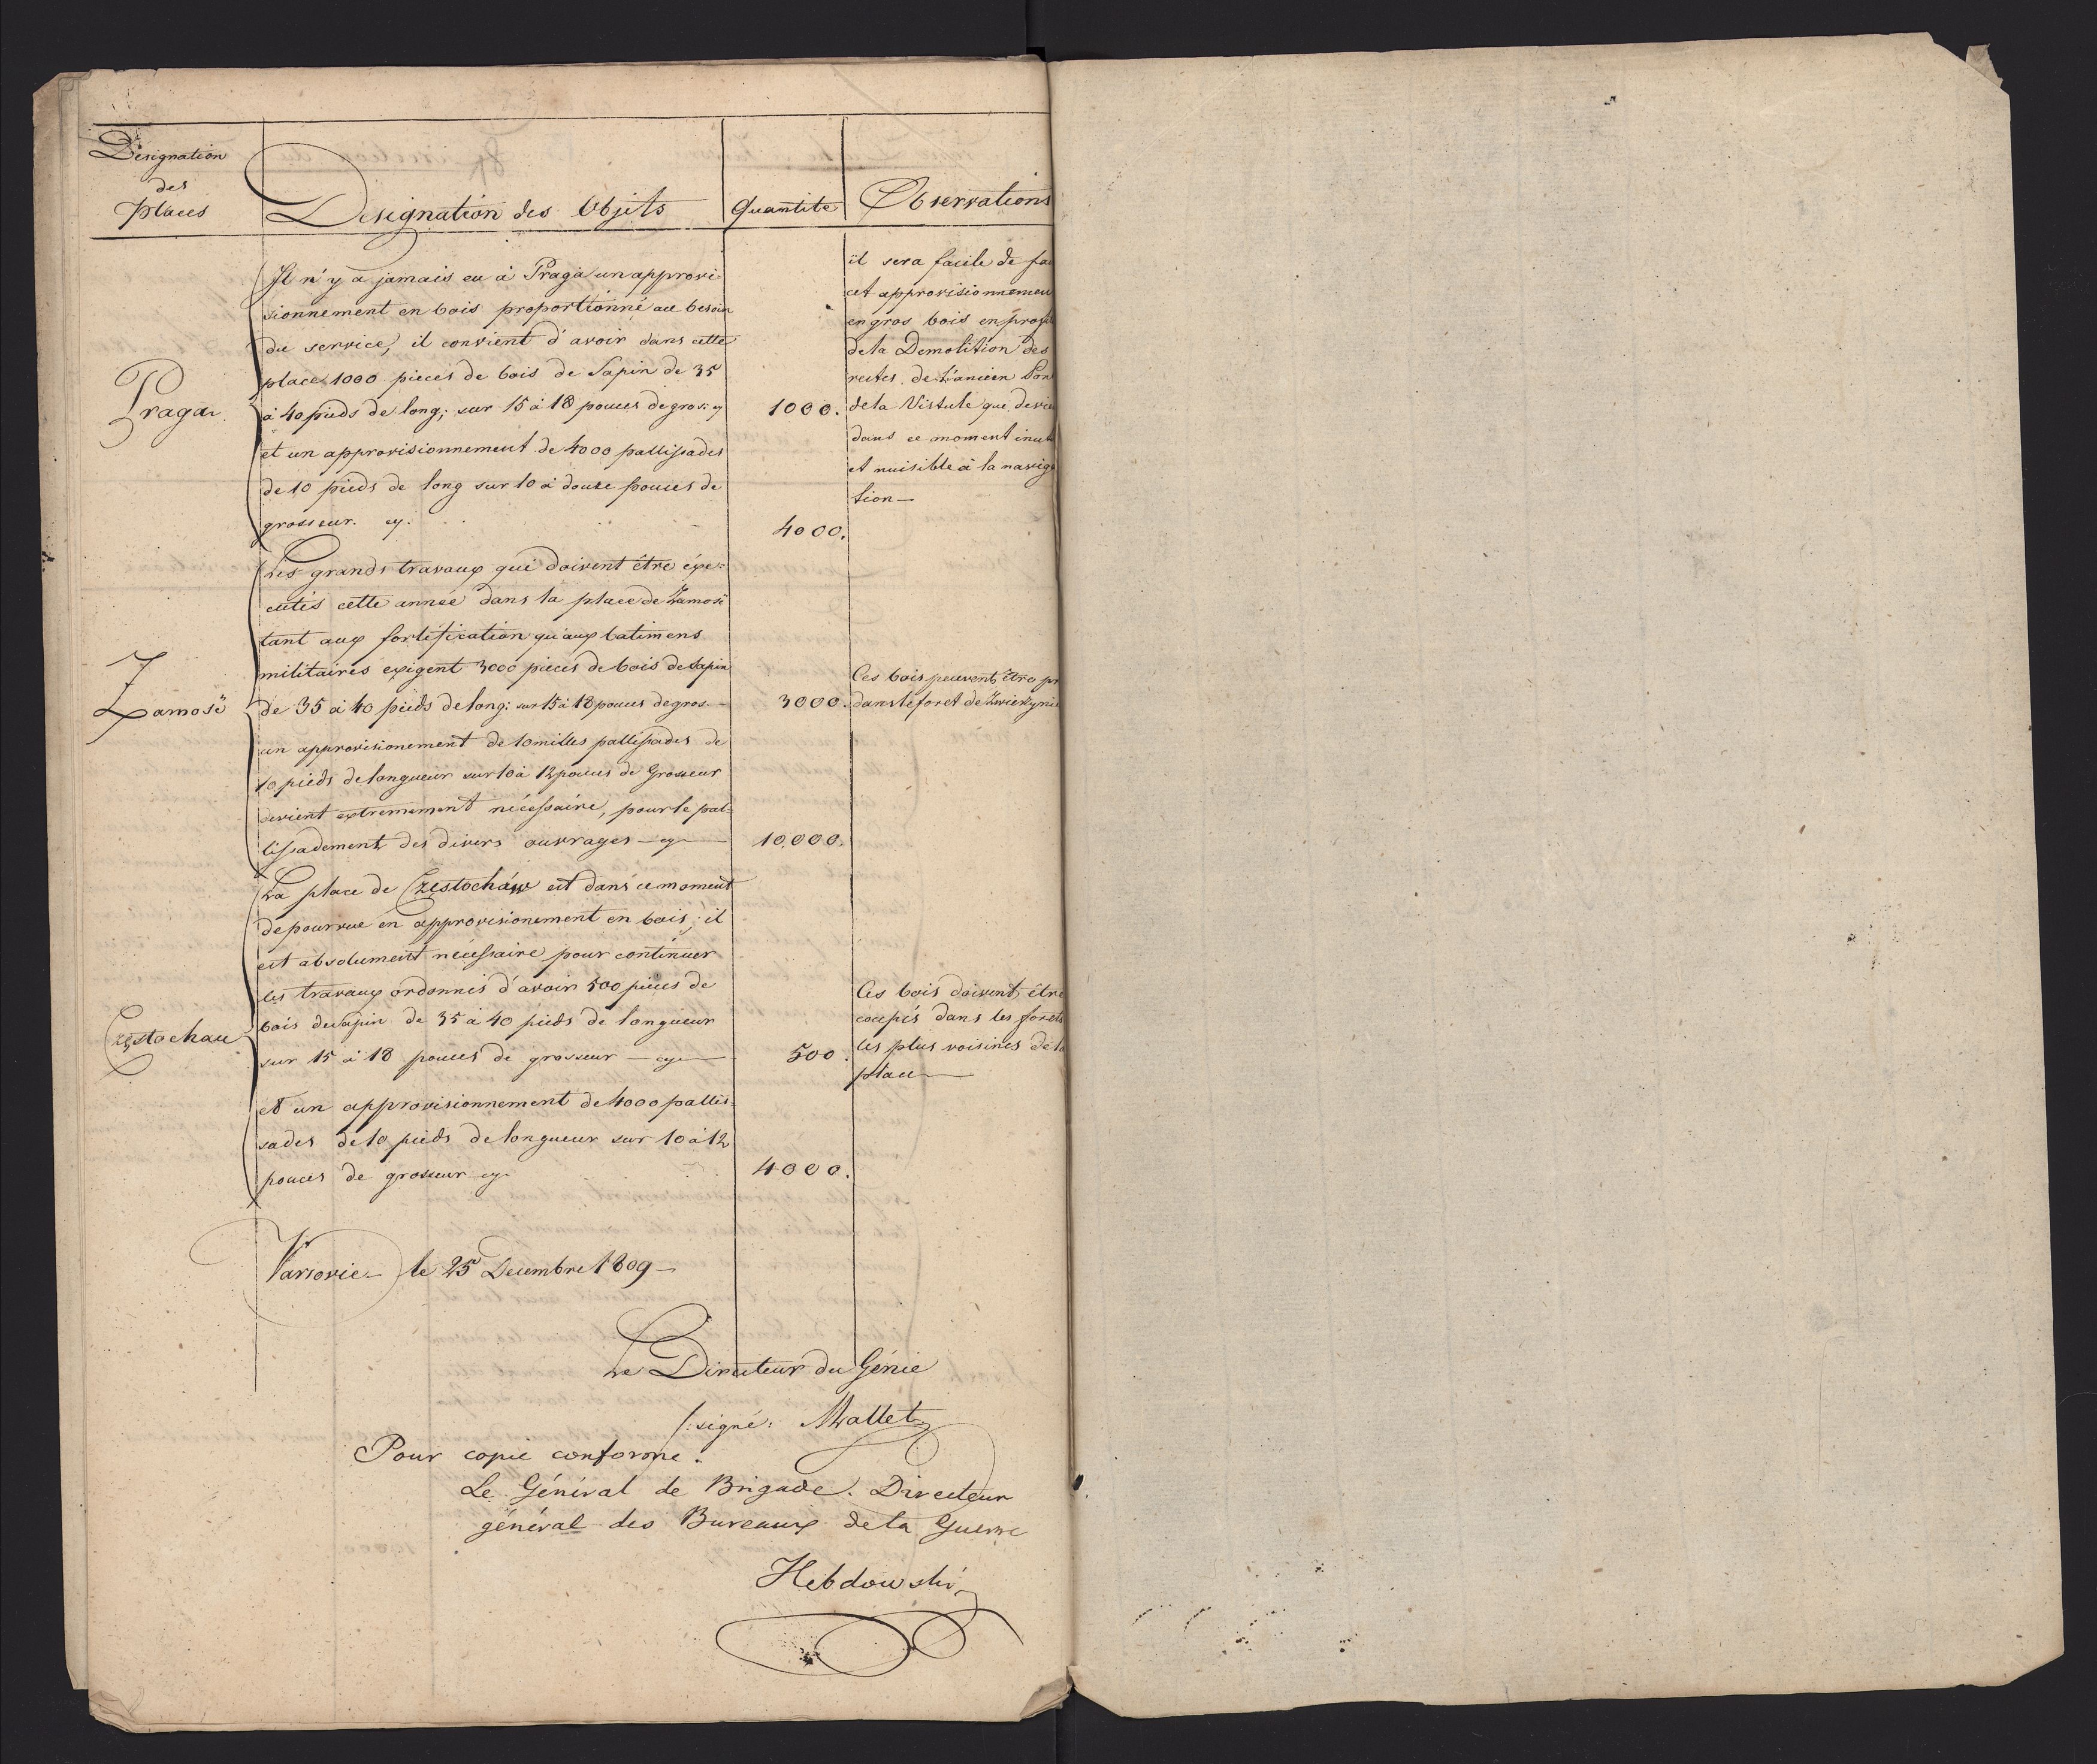 Désignation
des
Places
Designation des Objets
Quantité
Observations
Praga
Il n'y a jamais eu à Praga un approvi-
sionnement en bois proportionné au besoin
du service, il convient d'avoir dans cette
place 1000 pieces de bois de Sapin de 35
à 40 pieds de long; sur 15 à 18 pouces de gros: cy
1000.
et un approvisionnement de 4000 pallissades
de 10 pieds de long sur 10 à douze pouces de
grosseur. cy.
4000.
il sera facile de fa
cet approvisionnemen
en gros bois en profi
de la Demolition des
restes de l'ancien Pon
de la Vistule que devie
dans ce moment inut
et nuisible à la naviga
tion —
Zamosc
Les grands travaux qui doivent être éxe-
cutés cette année dans la place de Zamosc
tant aux fortification qu'aux batimens
militaires exigent 3000 pieces de bois de sapin
de 35 à 40 pieds de long: sur 15 à 18 pouces de gros. —
3000.
un approvisionement de 10 milles pallissades de
10 pieds de longueur sur 10 à 12 pouces de Grosseur
devient extremement nécessaire, pour le pal-
lissadement des divers ouvrages — cy —
10,000.
Ces bois peuvent être pr
dans le foret de Zwierzynie
Częstochau
La place de Częstocháw est dans ce moment
depourvue en approvisionement en bois; il
est absolument nécessaire pour continuer
les travaux ordonnés d'avoir 500 pieces de
bois de sapin de 35 à 40 pieds de longueur
sur 15 à 18 pouces de grosseur — cy —
500.
et un approvisionnement de 4000 pallis-
sades de 10 pieds de longueur sur 10 à 12
pouces de grosseur cy
4000.
Ces bois doivent être
coupés dans les forets
les plus voisines de la
place —
Varsovie — le 25 Decembre 1809 —
Le Directeur du Génie
/: signé: Mallet
Pour copie conforme.
Le Général de Brigade. Directeur
général des Bureaux de la Guerre
Hebdowski